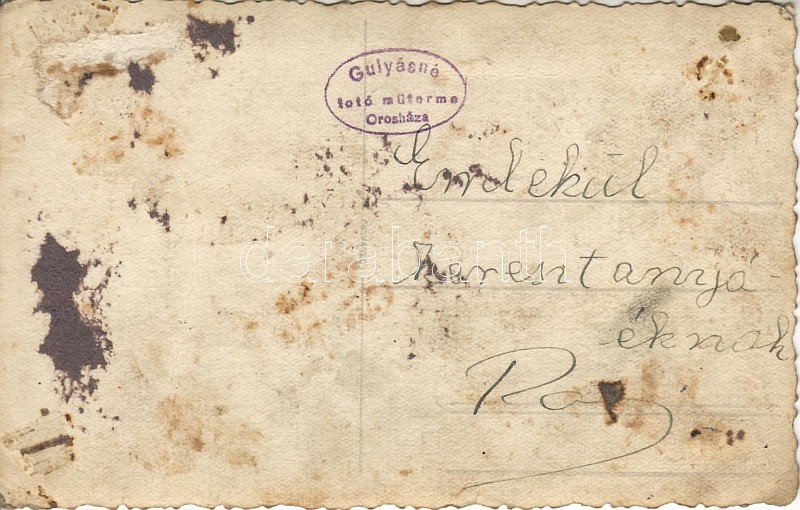 Gulyásné
fotó műterme
Orosháza
Emlékül
keresztanyjá-
éknak
darabanth